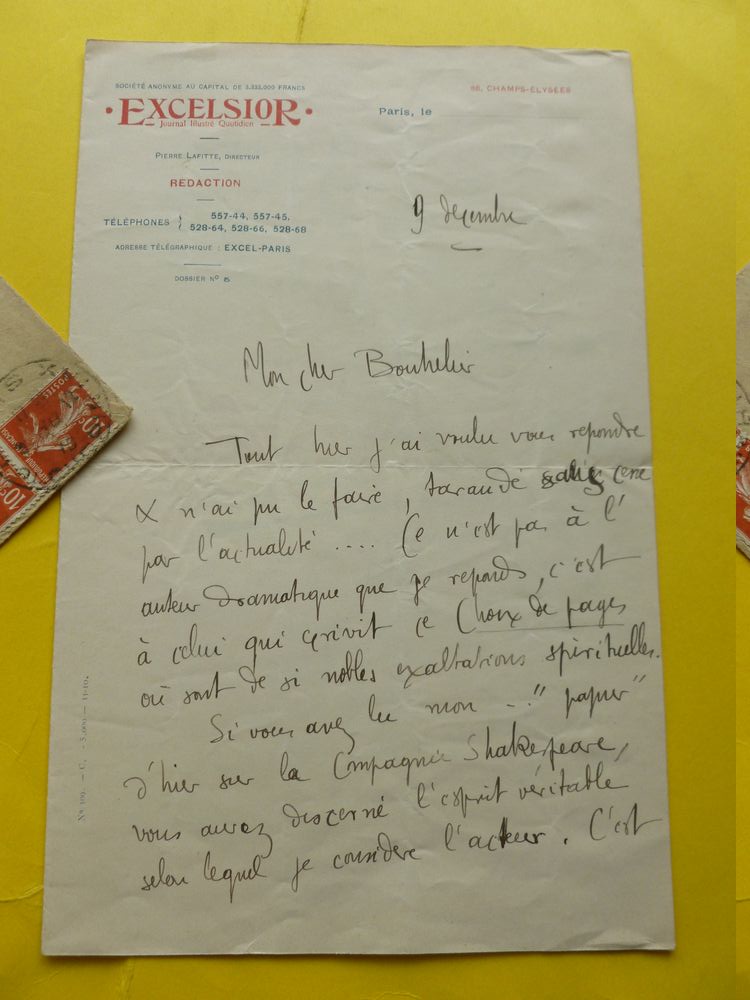 SOCIÉTÉ ANONYME AU CAPITAL DE 3.333.000 FRANCS
• EXCELSIOR •
Journal Illustré Quotidien
PIERRE LAFITTE, DIRECTEUR
RÉDACTION
TÉLÉPHONES 557-44, 557-45,
528-64, 528-66, 528-68
ADRESSE TÉLÉGRAPHIQUE : EXCEL-PARIS
DOSSIER Nº
88, CHAMPS-ÉLYSÉES
Paris, le
9 décembre
Mon cher Bouhelier
Tout hier j'ai voulu vous répondre
& n'ai pu le faire, taraudé sans cesse
par l'actualité .... Ce n'est pas à l'
auteur dramatique que je réponds, c'est
à celui qui écrivit ce Choix de pages
où sont de si nobles exaltations spirituelles.
Si vous avez lu mon .. "papier"
d'hier sur la Compagnie Shakespeare,
vous aurez discerné l'esprit véritable
selon lequel je considère l'acteur. C'est
POSTES
10